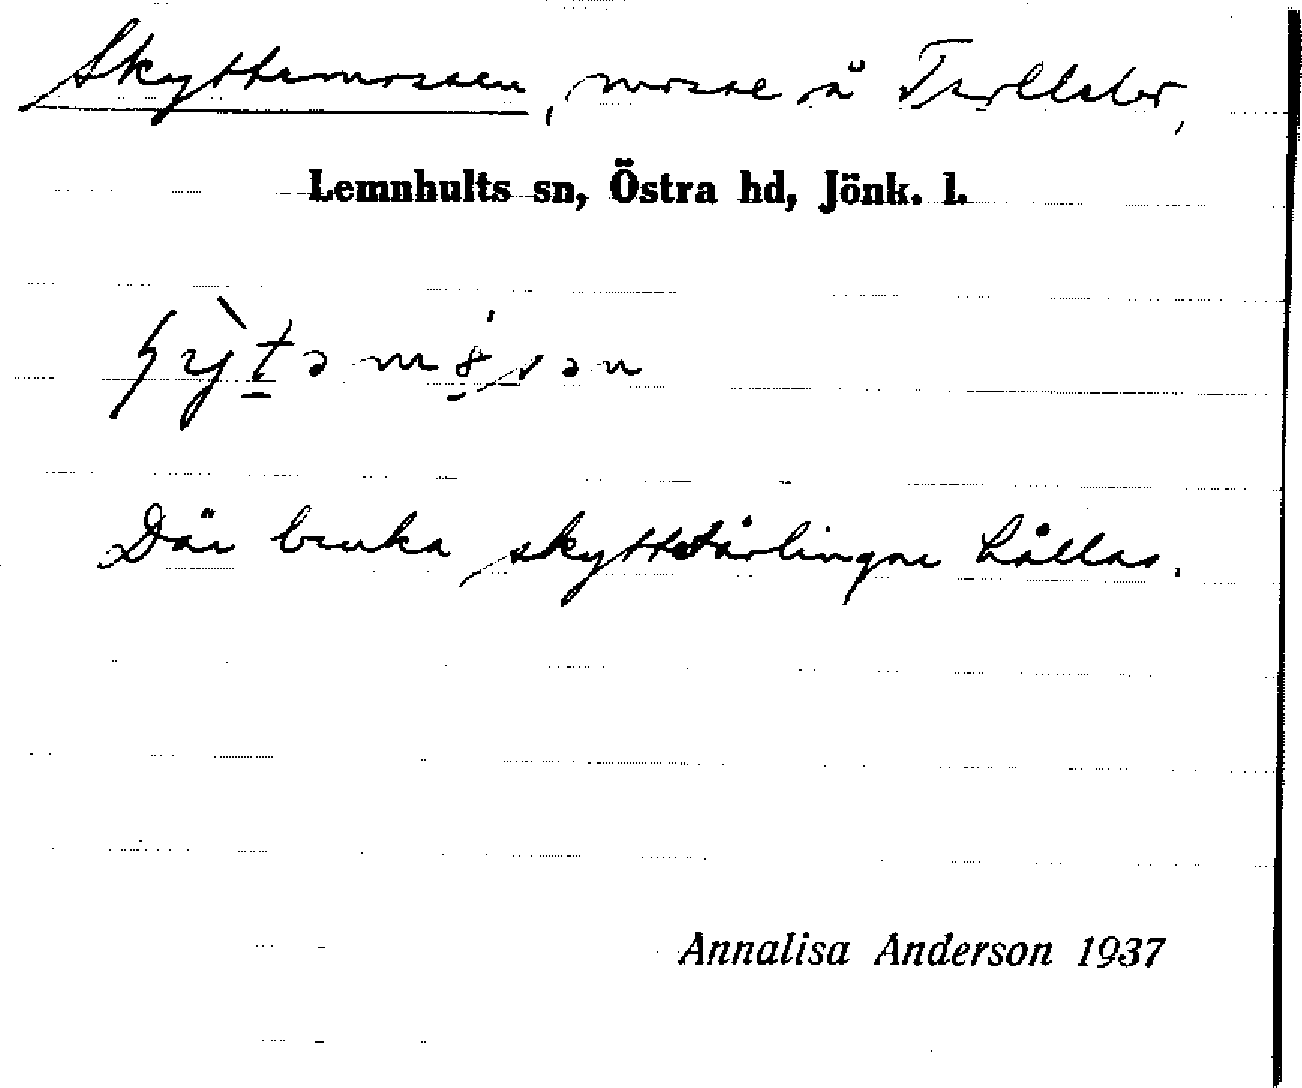 Skyttemossen, mosse å Trollebo,
Lemnhults sn, Östra hd, Jönk. l.
Där bruka skyttetävlingar hållas.
Annalisa Anderson 1937